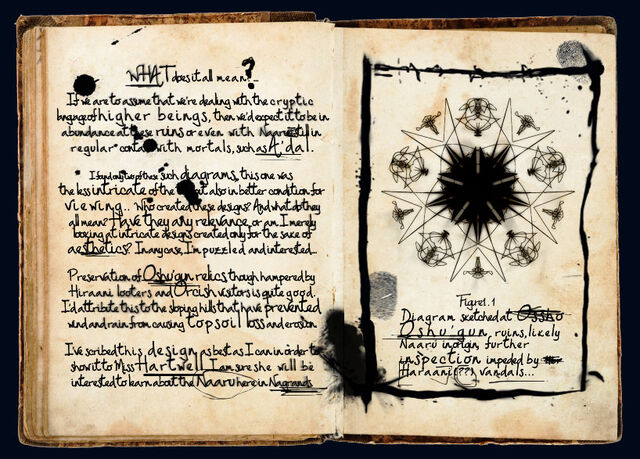 WHAT does it all mean?...
If we are to assume that we're dealing with the cryptic
language of higher beings, then we'd expect it to be in
abundance at these ruins or even with Naaru still in
regular contact with mortals, such as A'dal.
I found only two of these such diagrams, this one was
the less intricate of the but also in better condition for
viewing... Who created these designs? And what do they
all mean? Have they any relevance, or am I merely
looking at intricate designs created only for the sake of
aesthetics? In any case, I'm puzzled and interested...
Preservation of Oshu'gun relics though hampered by
Hiraani looters and Orcish visitors is quite good.
I'd attribute this to the sloping hills that have prevented
wind and rain from causing topsoil loss and erosion
I've scribed this design as best as I can in order to
show it to Miss Hartwell. I am sure she will be
interested to learn about the Naaru here in Nagrand
Figure 1.1
Diagram sketched at Ossho
Oshu'gun, ruins, likely
Naaru in origin, further
inspection impeded by
Haraani(??) vandals...